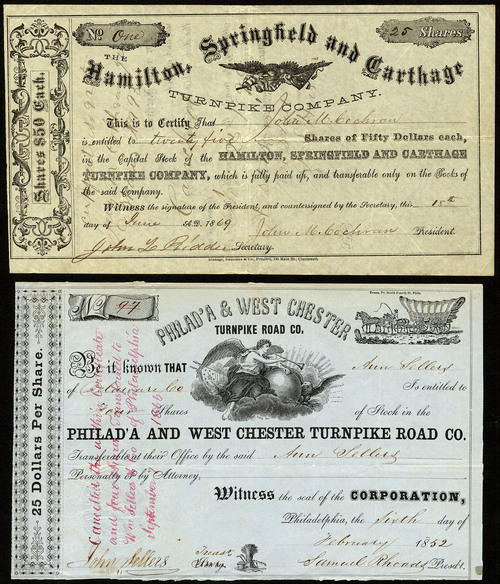 No One
25 Shares
THE
Hamilton, Springfield and Carthage
TURNPIKE COMPANY.
Shares $50 Each.
This is to Certify That John M. Cochran
is entitled to twenty five Shares of Fifty Dollars each,
in the Capital Stock of the HAMILTON, SPRINGFIELD AND CARTHAGE
TURNPIKE COMPANY, which is fully paid up, and transferable only on the Books of
the said Company.
Witness the signature of the President, and countersigned by the Secretary, this 15th
day of June A.D. 1869 John M. Cochran President.
John L. Ridder Secretary.
No 97
PHILAD'A & WEST CHESTER
TURNPIKE ROAD CO.
25 Dollars Per Share.
Be it known THAT Ann Sellers
of Delaware Co Is entitled to
four Shares of Stock in the
PHILAD'A AND WEST CHESTER TURNPIKE ROAD CO.
Transferable at their Office by the said Ann Sellers
Personally or by Attorney,
Witness the seal of the CORPORATION,
Philadelphia, the Sixth day of
February 1852
John Sellers Treast Samuel Rhoads Presdt.
Cancelled this Certificate
and four shares Transferred to
of Philadelphia
September 1866